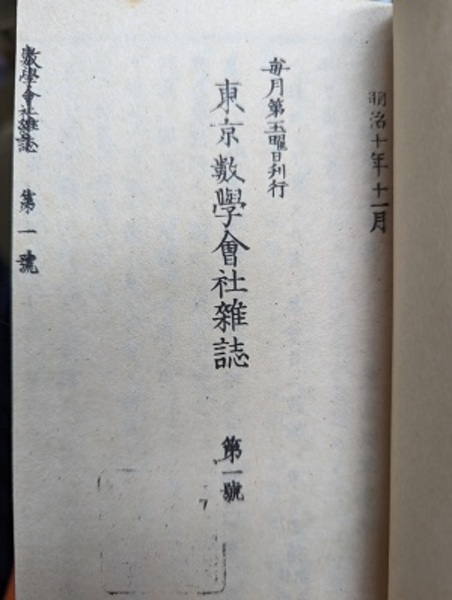 明治十年十一月
毎月第土曜日刋行
東京數學會社雜誌
第一號
數學會社雜誌 第一號